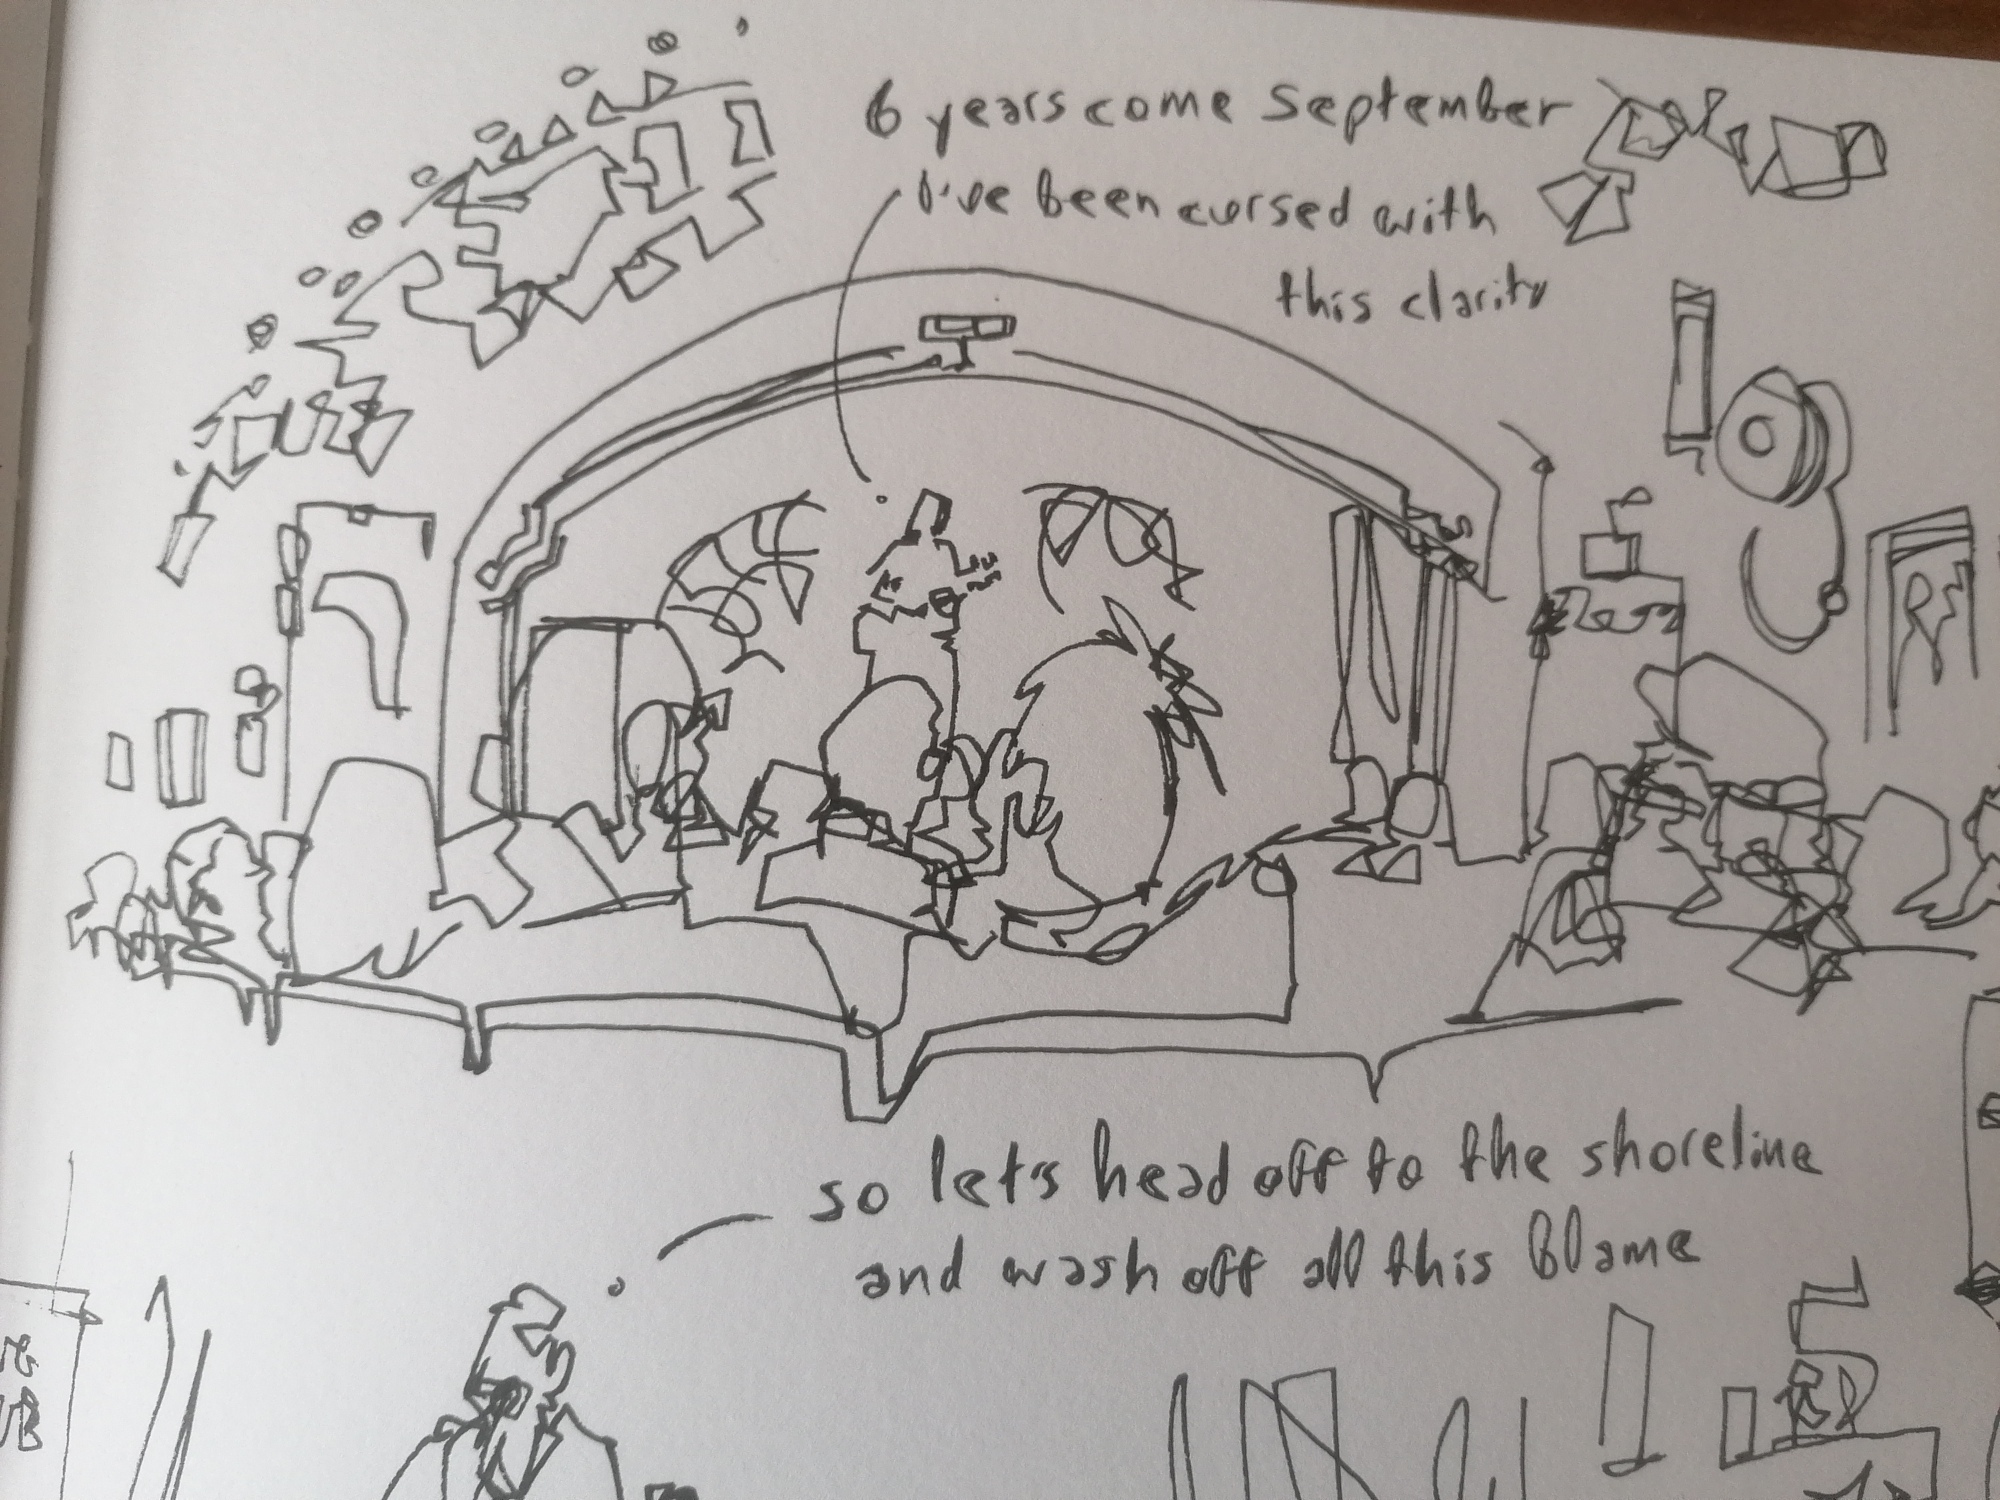 6 years come September
I've been cursed with
this clarity
so let's head off to the shoreline
and wash off all this blame